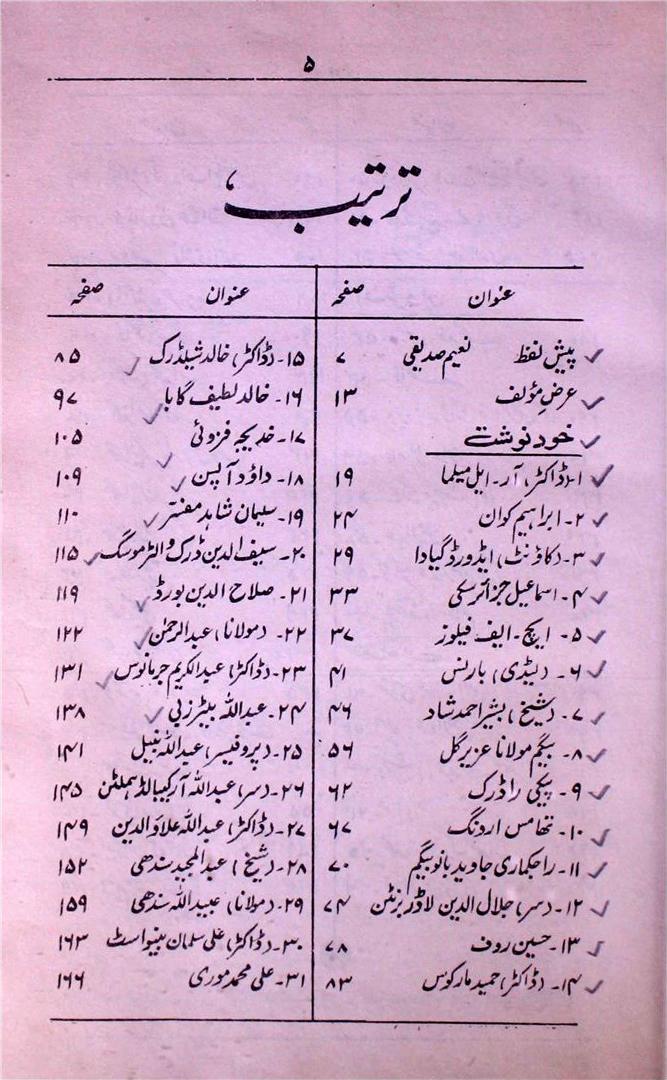 ۵
ترتیب
عنوان صفحہ
پیش لفظ نعیم صدیقی ۷
عرضِ مؤلف ۱۳
خود نوشت
۱۔ (ڈاکٹر) آر۔ ایل میلما ۱۹
۲۔ ابراہیم کوان ۲۴
۳۔ (کاؤنٹ) ایڈورڈ گیادا ۲۹
۴۔ اسماعیل جزائرسکی ۳۳
۵۔ ایچ۔ ایف فیلوز ۳۷
۶۔ (لیڈی) بارنس ۴۱
۷۔ (شیخ) بشیر احمد شاد ۴۶
۸۔ بیگم مولانا عزیر گل ۵۶
۹۔ پیگی راڈرک ۶۲
۱۰۔ تھامس ارونگ ۶۷
۱۱۔ راجکماری جاوید بانو بیگم ۷۰
۱۲۔ (سر) جلال الدین لاڈر برنٹن ۷۴
۱۳۔ حسین روف ۷۸
۱۴۔ (ڈاکٹر) حمید مارکوس ۸۳
عنوان صفحہ
۱۵۔ (ڈاکٹر) خالد شیلڈرک ۸۵
۱۶۔ خالد لطیف گابا ۹۷
۱۷۔ خدیجہ فزوئی ۱۰۵
۱۸۔ داؤد آپسن ۱۰۹
۱۹۔ سلیمان شاہد مفسر ۱۱۰
۲۰۔ سیف الدین ڈرک والٹر موسگ ۱۱۵
۲۱۔ صلاح الدین بورڈ ۱۱۹
۲۲۔ (مولانا) عبدالرحمٰن ۱۲۲
۲۳۔ (ڈاکٹر) عبدالکریم جرمانوس ۱۳۱
۲۴۔ عبداللہ بیٹرزبی ۱۳۸
۲۵۔ (پروفیسر) عبداللہ نبیل ۱۴۱
۲۶۔ (سر) عبداللہ آرکیبالڈ ہملٹن ۱۴۵
۲۷۔ (ڈاکٹر) عبداللہ علاؤالدین ۱۴۹
۲۸۔ (شیخ) عبدالمجید سندھی ۱۵۲
۲۹۔ (مولانا) عبیداللہ سندھی ۱۵۹
۳۰۔ (ڈاکٹر) علی سلمان بینواسٹ ۱۶۳
۳۱۔ علی محمد موری ۱۶۶